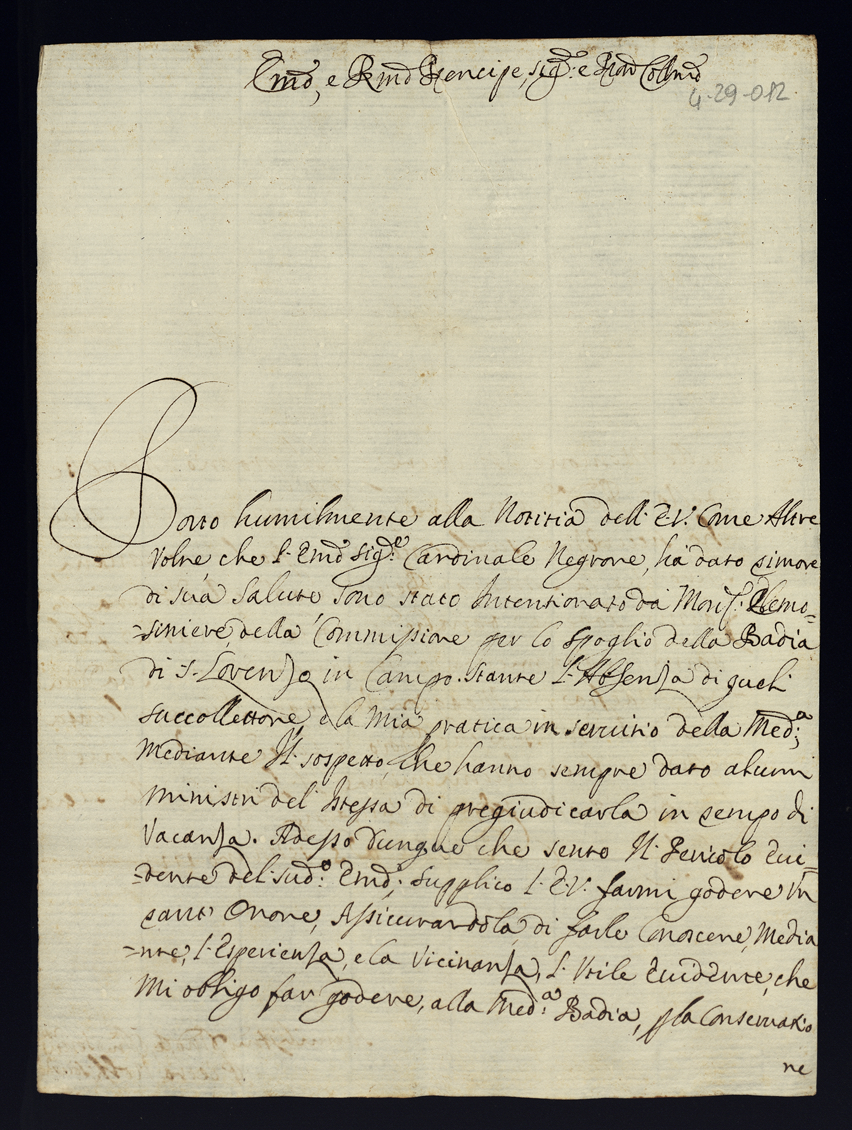 Em̃o, e Rm̃o Prencipe, sig:e e Pr̃on Coll̃mo
4-29-012.
Porto humilmente alla Notitia dell' E.V. Come Altre
Volte che l'Em̃o Sig:e Cardinale Negrone, hà dato timore
di sua Salute sono stato Intentionato da Mons.r Elemo-
=siniere della Commissione per lo spoglio della Badia
di S. Lorenzo in Campo. Stante l'Absenza di quel
succollettore, e la Mia pratica in servitio della Med:a
Mediante Il sospetto, che hanno sempre dato alcuni
Ministri del Istessa di pregiudicarla in tempo di
Vacanza. Adesso dunque che sento Il Pericolo Evi=
=dente del sud:o Em̃o; Supplico l'E.V. farmi godere Un
tant' Onore, Assicurandola di farle Conoscere, Media
=nte, l'Esperienza, e la Vicinanza, l'Utile Evidente, che
Mi obligo far godere, alla Med:a Badia, p la Conservatio
ne